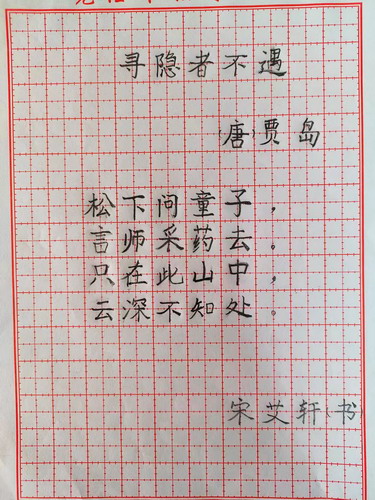 寻隐者不遇
(唐)贾岛
松下问童子，
言师采药去。
只在此山中，
云深不知处。
宋艾轩(书)